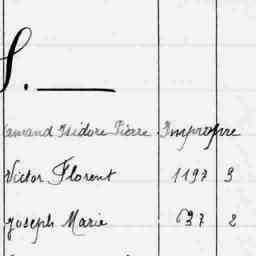 S.
amand Isidore Pierre Impropre
Victor Florent 1197 3
Joseph Marie 637 2